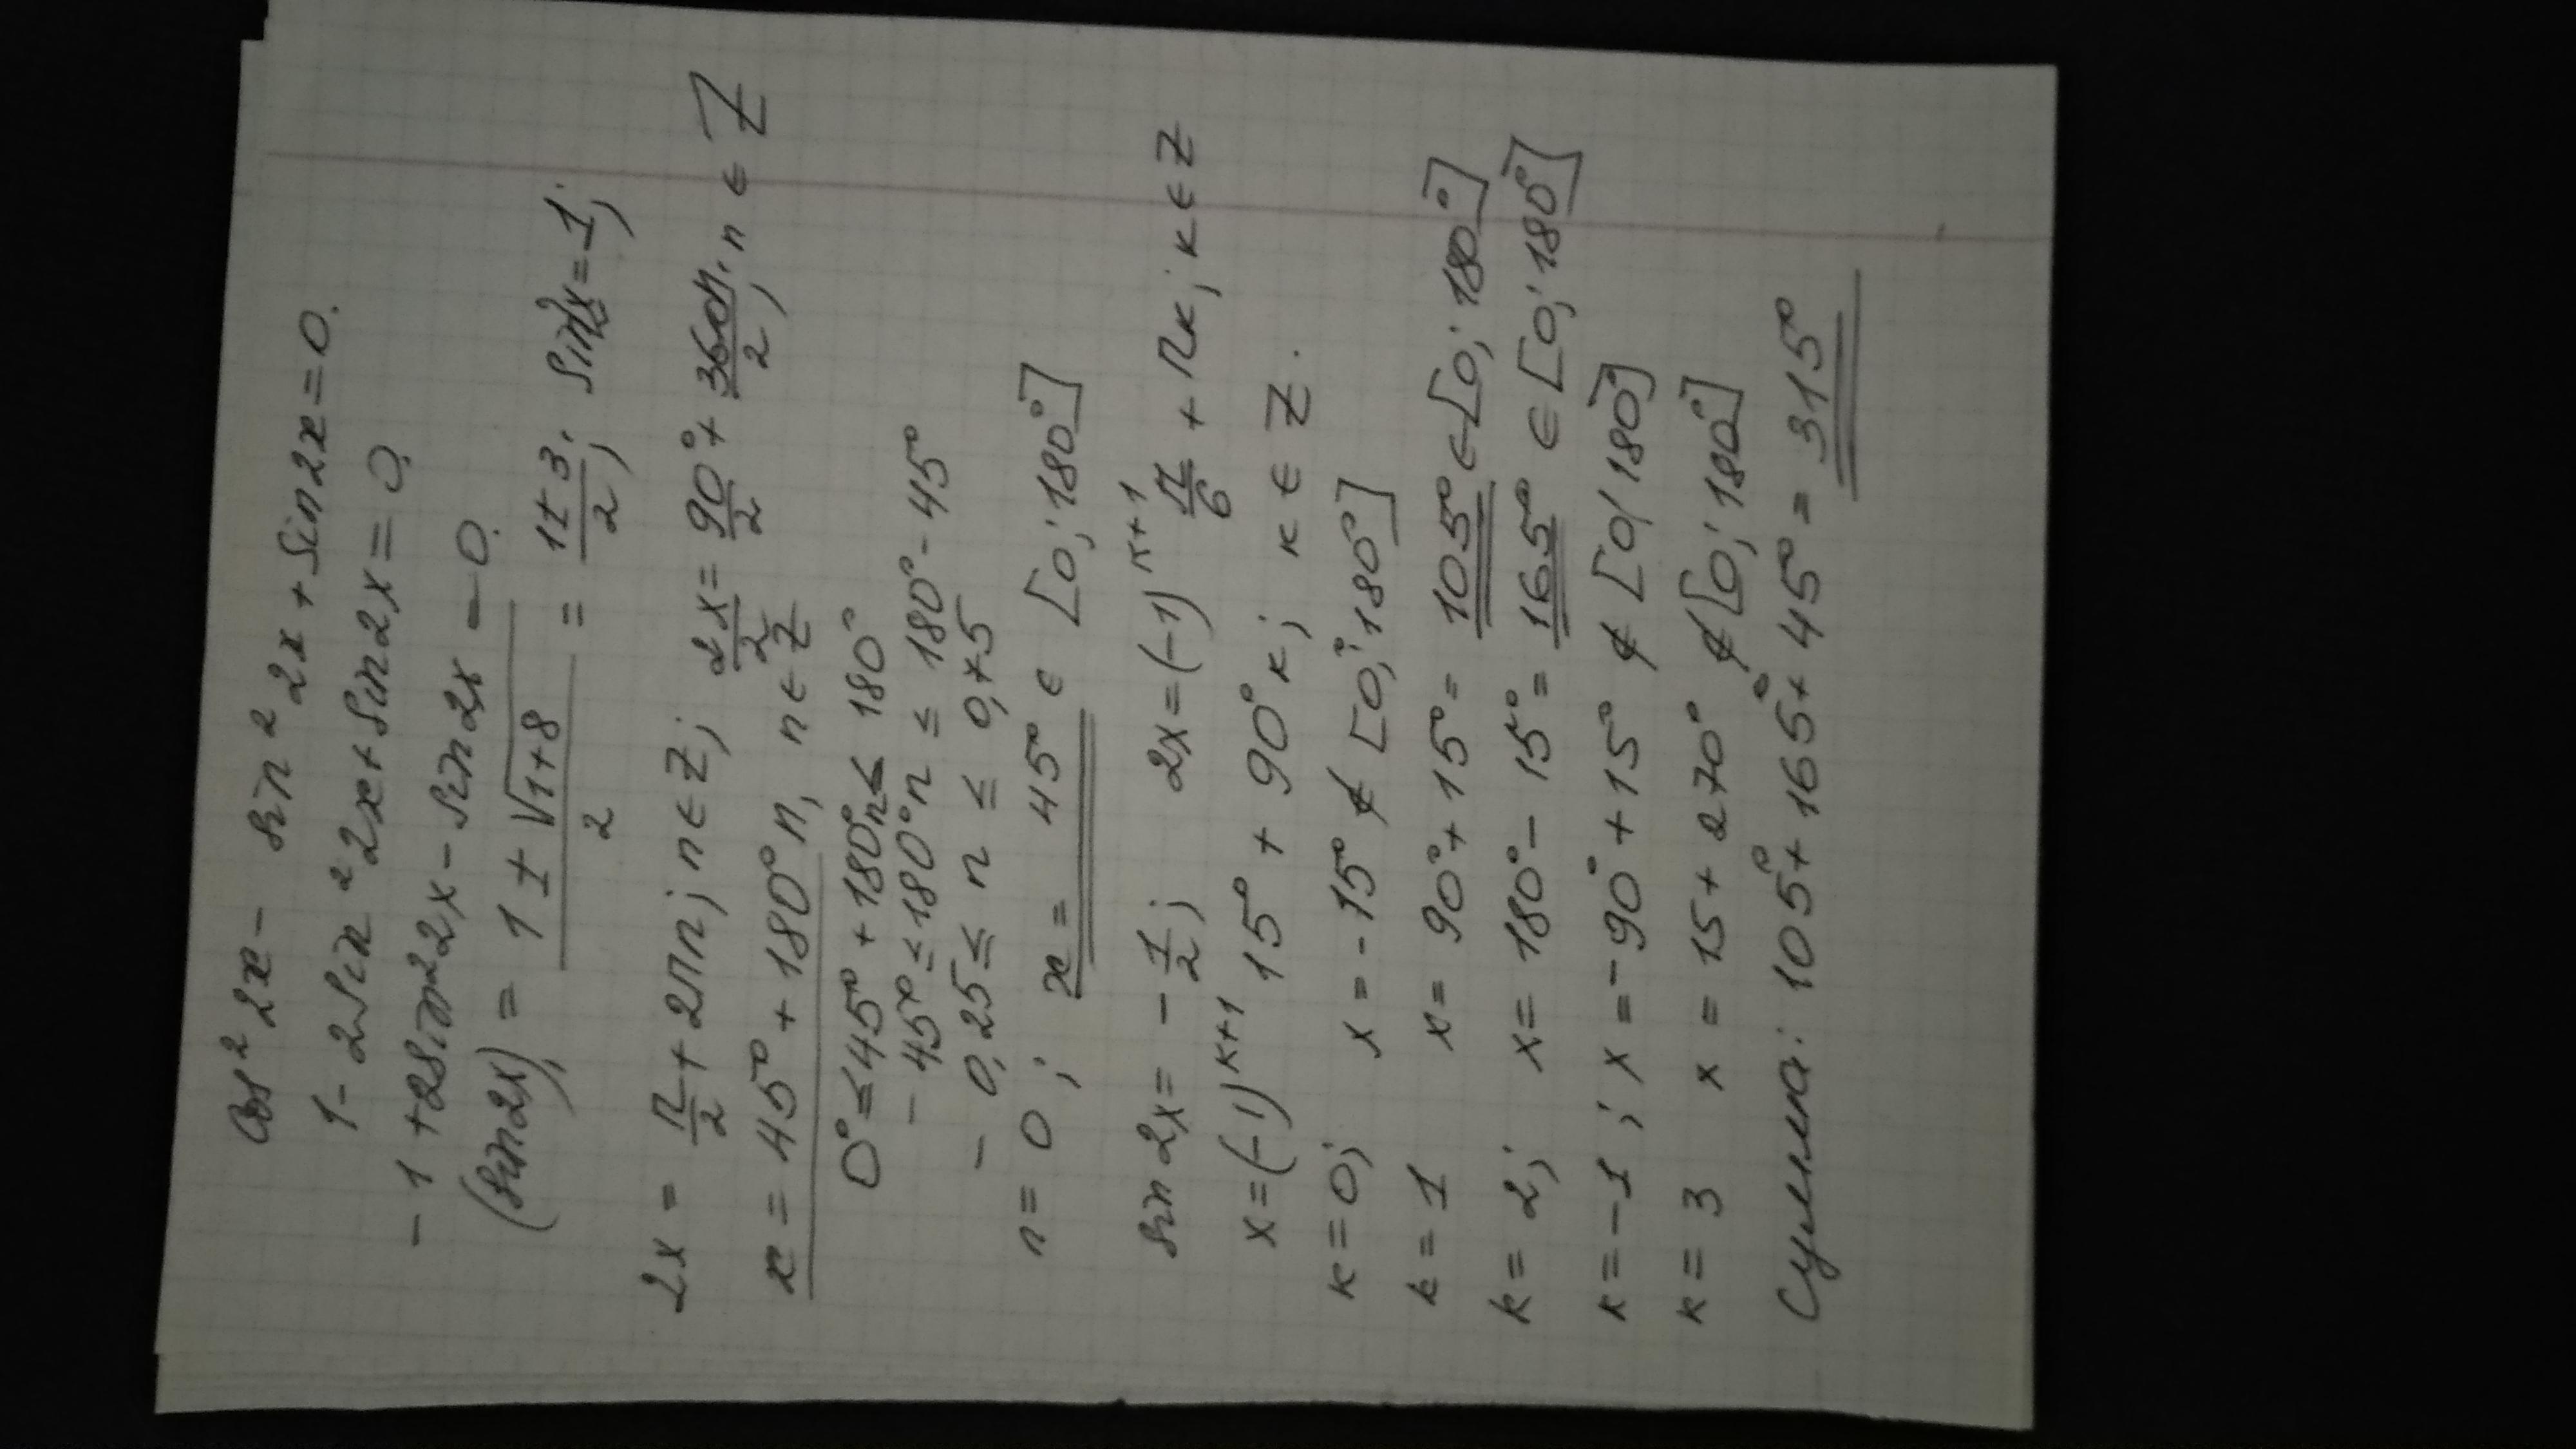 cos² 2x - sin² 2x + sin 2x = 0.
1 - 2 sin² 2x + sin 2x = 0
- 1 + 2 sin² 2x - sin 2x = 0.
(sin 2x)₁ = (1 ± √(1+8))/2 = (1 ± 3)/2; sin 2x = 1;
2x = π/2 + 2πn; n ∈ Z; 2x/2 = 90°/2 + 360n/2; n ∈ Z
x = 45° + 180° n, n ∈ Z
0° ≤ 45° + 180°n ≤ 180°
- 45° ≤ 180° n ≤ 180° - 45°
- 0,25 ≤ n ≤ 0,75
n = 0; x = 45° ∈ [0; 180°]
sin 2x = - 1/2; 2x = (-1)ⁿ⁺¹ π/6 + πk; k ∈ Z
x = (-1)ᵏ⁺¹ 15° + 90° k; k ∈ Z.
k = 0; x = - 15° ∉ [0; 180°]
k = 1 x = 90° + 15° = 105° ∈ [0; 180°]
k = 2; x = 180° - 15° = 165° ∈ [0; 180°]
k = -1; x = - 90° + 15° ∉ [0; 180°]
k = 3 x = 15 + 270° ∉ [0; 180°]
Сумма: 105° + 165° + 45° = 315°